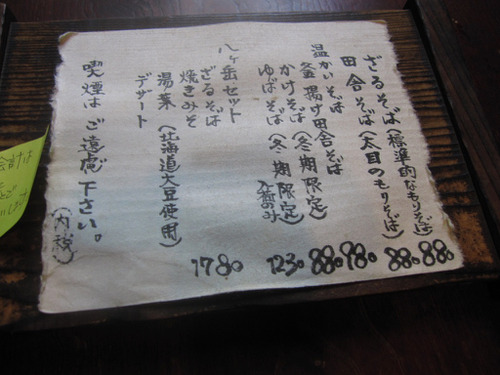 ざるそば(標準的なもりそば) 880
田舎そば(太目のもりそば) 880
温かいそば
釜揚げ田舎そば 980
かけそば(冬期限定) 880
ゆばそば(冬期限定) 1230
八ヶ岳セット 1780
ざるそば
焼きみそ
湯葉(北海道大豆使用)
デザート
喫煙はご遠慮下さい。
(内税)